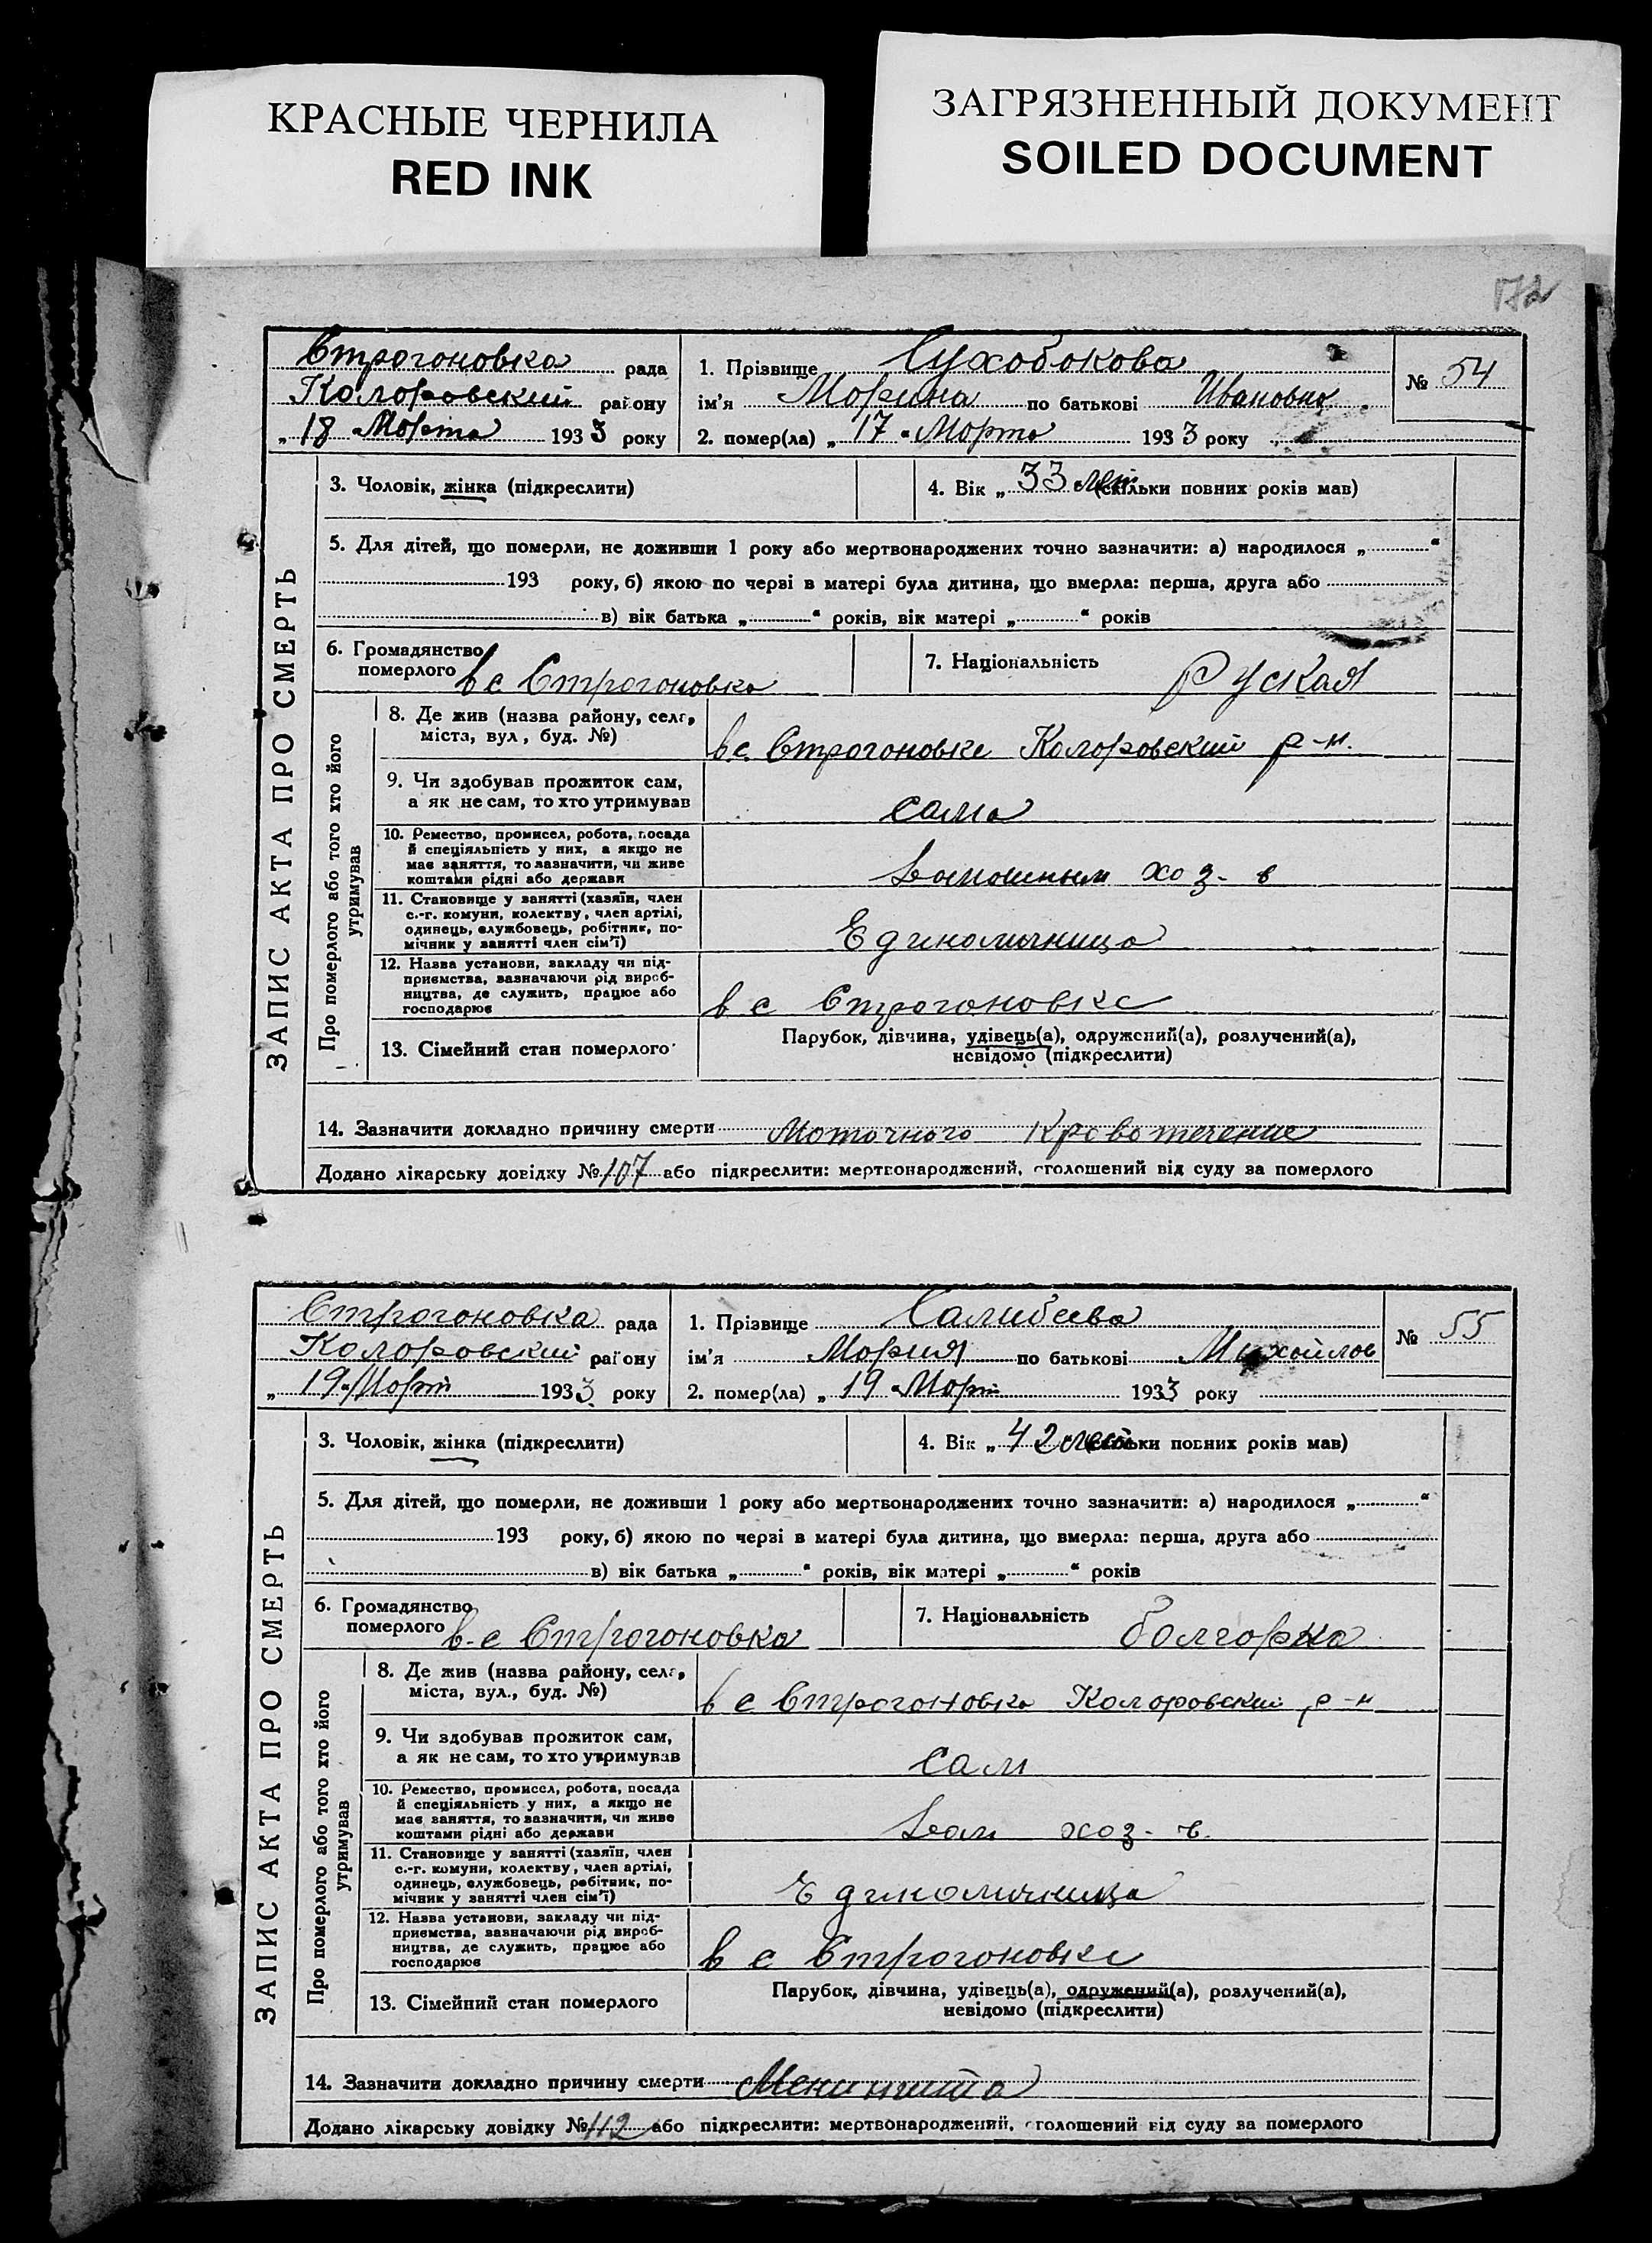 КРАСНЫЕ ЧЕРНИЛА
RED INK
ЗАГРЯЗНЕННЫЙ ДОКУМЕНТ
SOILED DOCUMENT
172
ЗАПИС АКТА ПРО СМЕРТЬ
Строгоновка рада
Коларовский району
„ 18 " Марта 1933 року
1. Прізвище Сухобокова
ім'я Марина по батькові Ивановна
2. помер(ла) „ 17 " Марта 1933 року
№ 54
3. Чоловік, жінка (підкреслити)
4. Вік „ 33 лет (скільки повних років мав)
5. Для дітей, що померли, не доживши 1 року або мертвонароджених точно зазначити: а) народилося „ "
193 року, б) якою по черзі в матері була дитина, що вмерла: перша, друга або
в) вік батька „ " років, вік матері „ " років
6. Громадянство
померлого в с Строгоновка
7. Національність Руская
Про померлого або того хто його
утримував
8. Де жив (назва району, села,
міста, вул, буд. №)
в с. Строгоновке Коларовский р-н.
9. Чи здобував прожиток сам,
а як не сам, то хто утримував
сама
10. Ремество, промисел, робота, посада
й спеціяльність у них, а якщо не
має заняття, то зазначити, чи живе
коштами рідні або держави
хоз-в
11. Становище у занятті (хазяїн, член
с.-г. комуни, колективу, член артілі,
одинець, службовець, робітник, по-
мічник у занятті член сім'ї)
Единоличница
12. Назва установи, закладу чи під-
приємства, зазначаючи рід вироб-
ництва, де служить, працює або
господарює
в с Строгоновке
13. Сімейний стан померлого
Парубок, дівчина, удівець(а), одружений(а), розлучений(а),
невідомо (підкреслити)
14. Зазначити докладно причину смерти Маточного Кровотечение
Додано лікарську довідку № 107 або підкреслити: мертвонароджений, оголошений від суду за померлого
ЗАПИС АКТА ПРО СМЕРТЬ
Строгоновка рада
Коларовский району
„ 19 " Март 1933 року
1. Прізвище Салибеева
ім'я Мария по батькові Михайлов
2. помер(ла) „ 19 " Март 1933 року
№ 55
3. Чоловік, жінка (підкреслити)
4. Вік „ 42 лет (скільки повних років мав)
5. Для дітей, що померли, не доживши 1 року або мертвонароджених точно зазначити: а) народилося „ "
193 року, б) якою по черзі в матері була дитина, що вмерла: перша, друга або
в) вік батька „ " років, вік матері „ " років
6. Громадянство
померлого в. с Строгоновка
7. Національність болгарка
Про померлого або того хто його
утримував
8. Де жив (назва району, села,
міста, вул., буд. №)
в с Строгоновка Коларовский р-н
9. Чи здобував прожиток сам,
а як не сам, то хто утримував
сам
10. Ремество, промисел, робота, посада
й спеціяльність у них, а якщо не
має заняття, то зазначити, чи живе
коштами рідні або держави
хоз-в.
11. Становище у занятті (хазяїн, член
с.-г. комуни, колективу, член артілі,
одинець, службовець, робітник, по-
мічник у занятті член сім'ї)
Единоличница
12. Назва установи, закладу чи під-
приємства, зазначаючи рід вироб-
ництва, де служить, працює або
господарює
в с Строгоновке
13. Сімейний стан померлого
Парубок, дівчина, удівець(а), одружений(а), розлучений(а),
невідомо (підкреслити)
14. Зазначити докладно причину смерти Менингита
Додано лікарську довідку № 112 або підкреслити: мертвонароджений, оголошений від суду за померлого